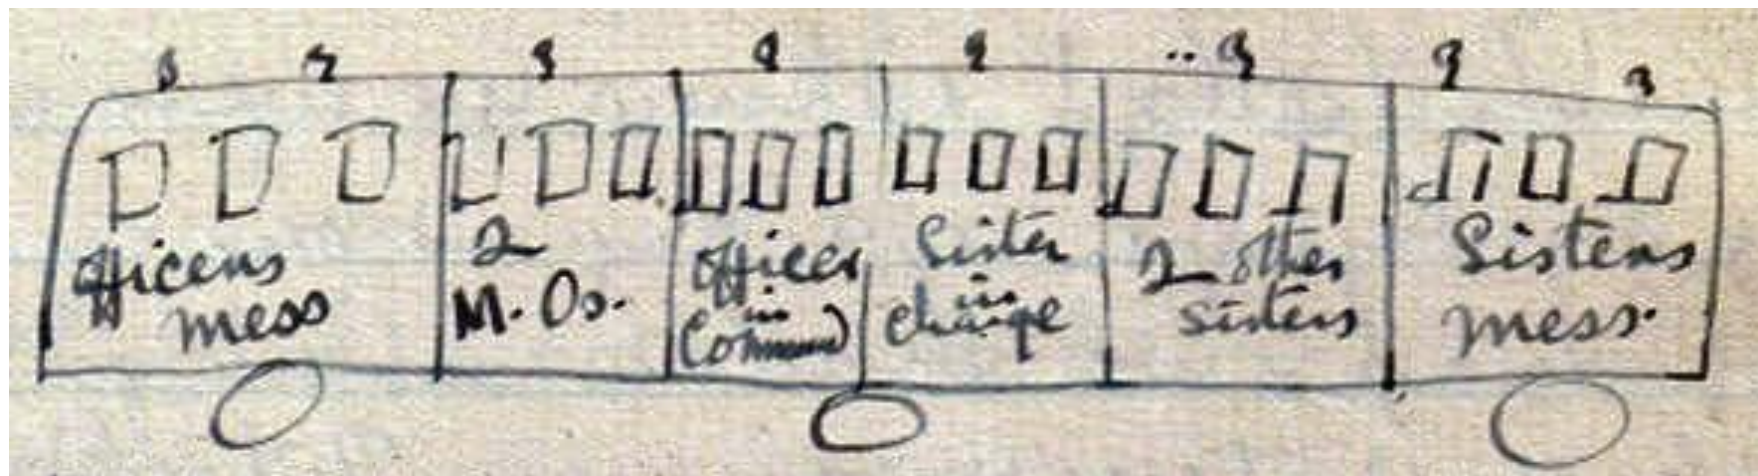 Officers
mess
2
M.Os.
Officer
in
Command
Sister
in
charge
2 other
sisters
Sisters
mess.